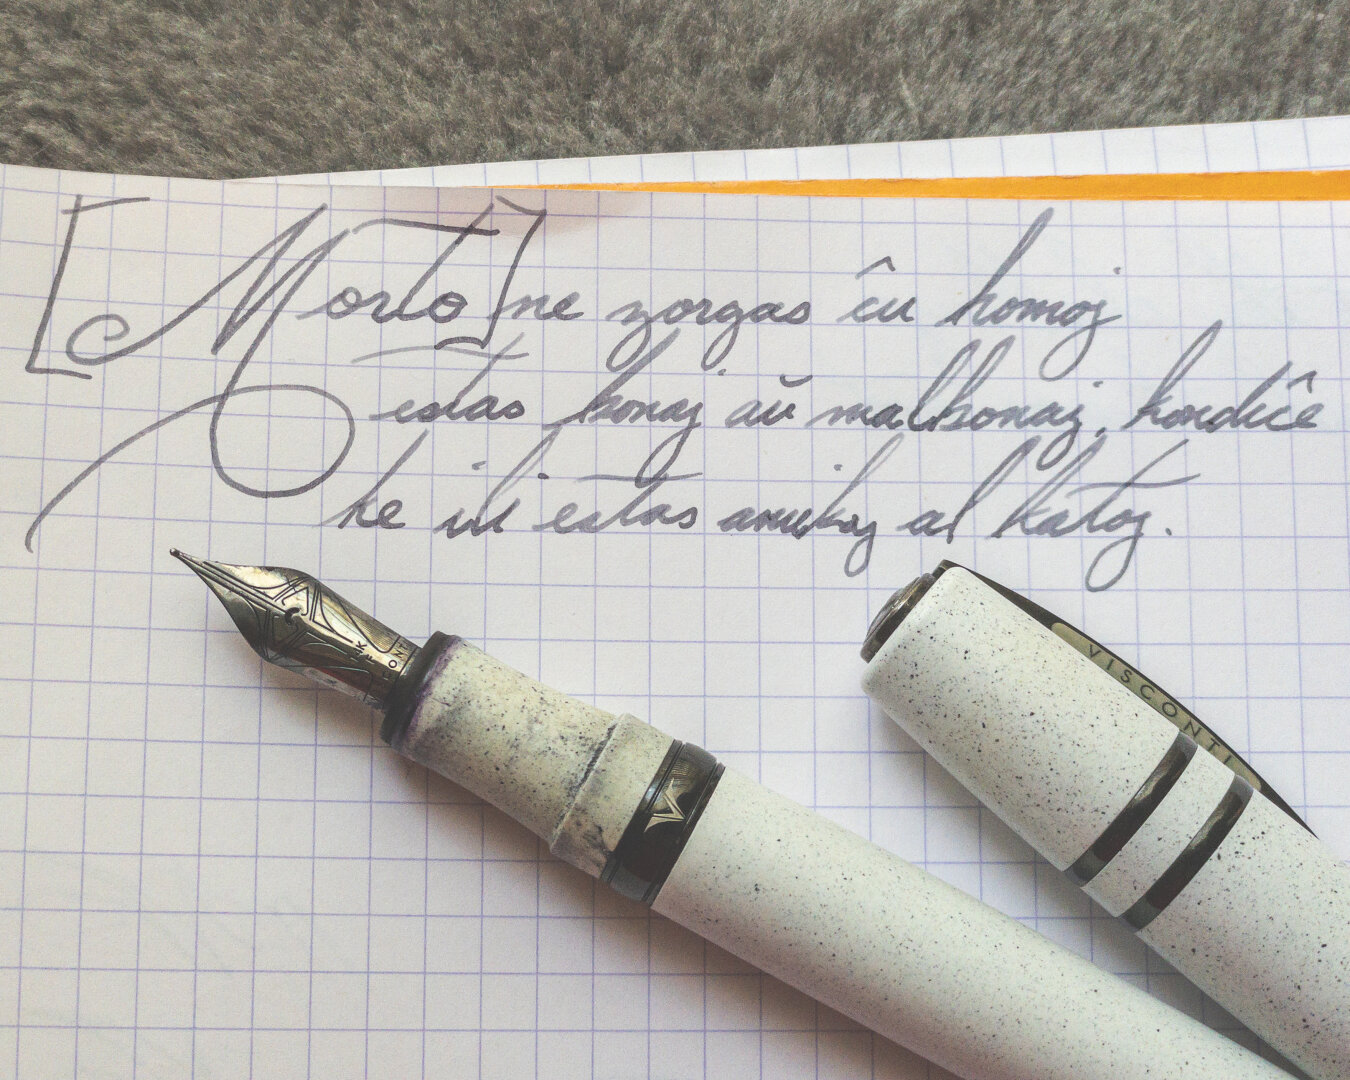 [Morto] ne zorgas ĉu homoj
estas bonaj aŭ malbonaj, kondiĉe
ke ili estas amikoj al katoj.
VISCONTI